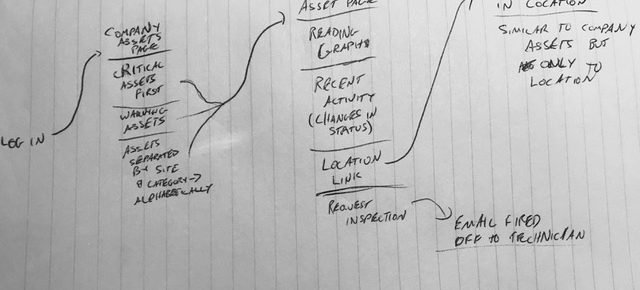 LOG IN
COMPANY
ASSETS
PAGE
CRITICAL
ASSETS
FIRST
WARNING
ASSETS
ASSETS
SEPARATED
BY SITE
& CATEGORY →
ALPHABETICALLY
ASSET PAGE
READING
GRAPHS
RECENT
ACTIVITY
(CHANGES IN
STATUS)
LOCATION
LINK
REQUEST
INSPECTION
EMAIL FIRED
OFF TO TECHNICIAN
IN LOCATION
SIMILAR TO COMPANY
ASSETS BUT
ONLY TO
LOCATION